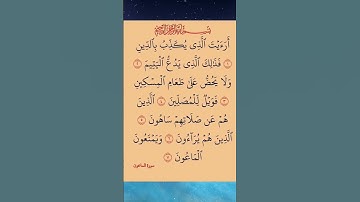 بسم الله الرحمن الرحيم
أَرَءَيْتَ ٱلَّذِى يُكَذِّبُ بِٱلدِّينِ
١ فَذَٰلِكَ ٱلَّذِى يَدُعُّ ٱلْيَتِيمَ ٢
وَلَا يَحُضُّ عَلَىٰ طَعَامِ ٱلْمِسْكِينِ
٣ فَوَيْلٌ لِّلْمُصَلِّينَ ٤ ٱلَّذِينَ
هُمْ عَن صَلَاتِهِمْ سَاهُونَ ٥
ٱلَّذِينَ هُمْ يُرَآءُونَ ٦ وَيَمْنَعُونَ
ٱلْمَاعُونَ ٧
سورة الماعون